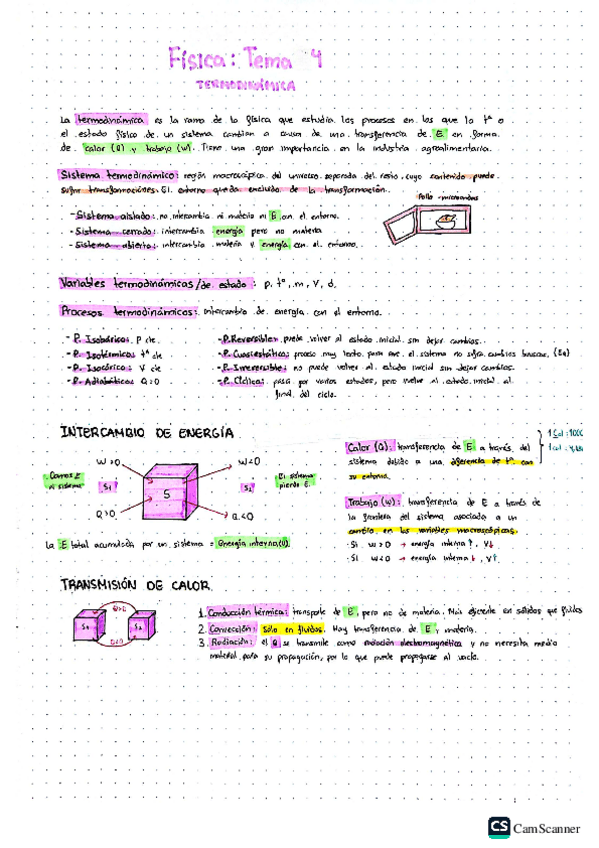 Física: Tema 4
TERMODINÁMICA
La termodinámica es la rama de la física que estudia los procesos en los que la tª o
el estado físico de un sistema cambian a causa de una transferencia de E en forma
de calor (Q) y trabajo (W). Tiene una gran importancia en la industria agroalimentaria.
Sistema termodinámico: región macroscópica del universo separada del resto, cuyo contenido puede
sufrir transformaciones. El entorno queda excluido de la transformación.
Pollo - microondas
- Sistema aislado: no intercambia ni materia ni E con el entorno.
- Sistema cerrado: intercambia energía pero no materia
- Sistema abierto: intercambia materia y energía con el entorno.
Variables termodinámicas/de estado: p, tª, m, V, d.
Procesos termodinámicos: intercambio de energía con el entorno.
- P. Isobárico: P cte
- P. Isotérmico: tª cte
- P. Isocórico: V cte
- P. Adiabático: Q=0
- P. Reversible: puede volver al estado inicial sin dejar cambios.
- P. Cuasiestático: proceso muy lento para que el sistema no sufra cambios bruscos. (Eq)
- P. Irreversible: no puede volver al estado inicial sin dejar cambios.
- P. Cíclico: pasa por varios estados, pero vuelve al estado inicial al
final del ciclo.
INTERCAMBIO DE ENERGÍA
W>0
W<0
S
Q>0
Q<0
El sistema
pierde E.
La E total acumulada por un sistema: Energía interna(U).
Calor (Q): transferencia de E a través del
sistema debido a una diferencia de tª con
su entorno.
Trabajo (W): transferencia de E a través de
la frontera del sistema asociada a un
cambio en las variables macroscópicas.
· Si W>0 → energía interna ↑, V↓
· Si W<0 → energía interna ↓, V↑
TRANSMISIÓN DE CALOR
1. Conducción térmica: transporte de E, pero no de materia. Más eficiente en sólidos que fluidos
2. Convección: Sólo en fluidos. Hay transferencia de E y materia.
3. Radiación: el Q se transmite como radiación electromagnética y no necesita medio
material para su propagación, por lo que puede propagarse al vacío.
CS CamScanner